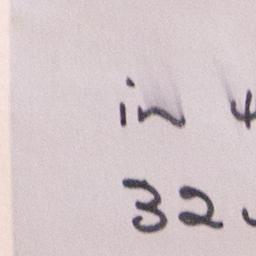 in 4
32